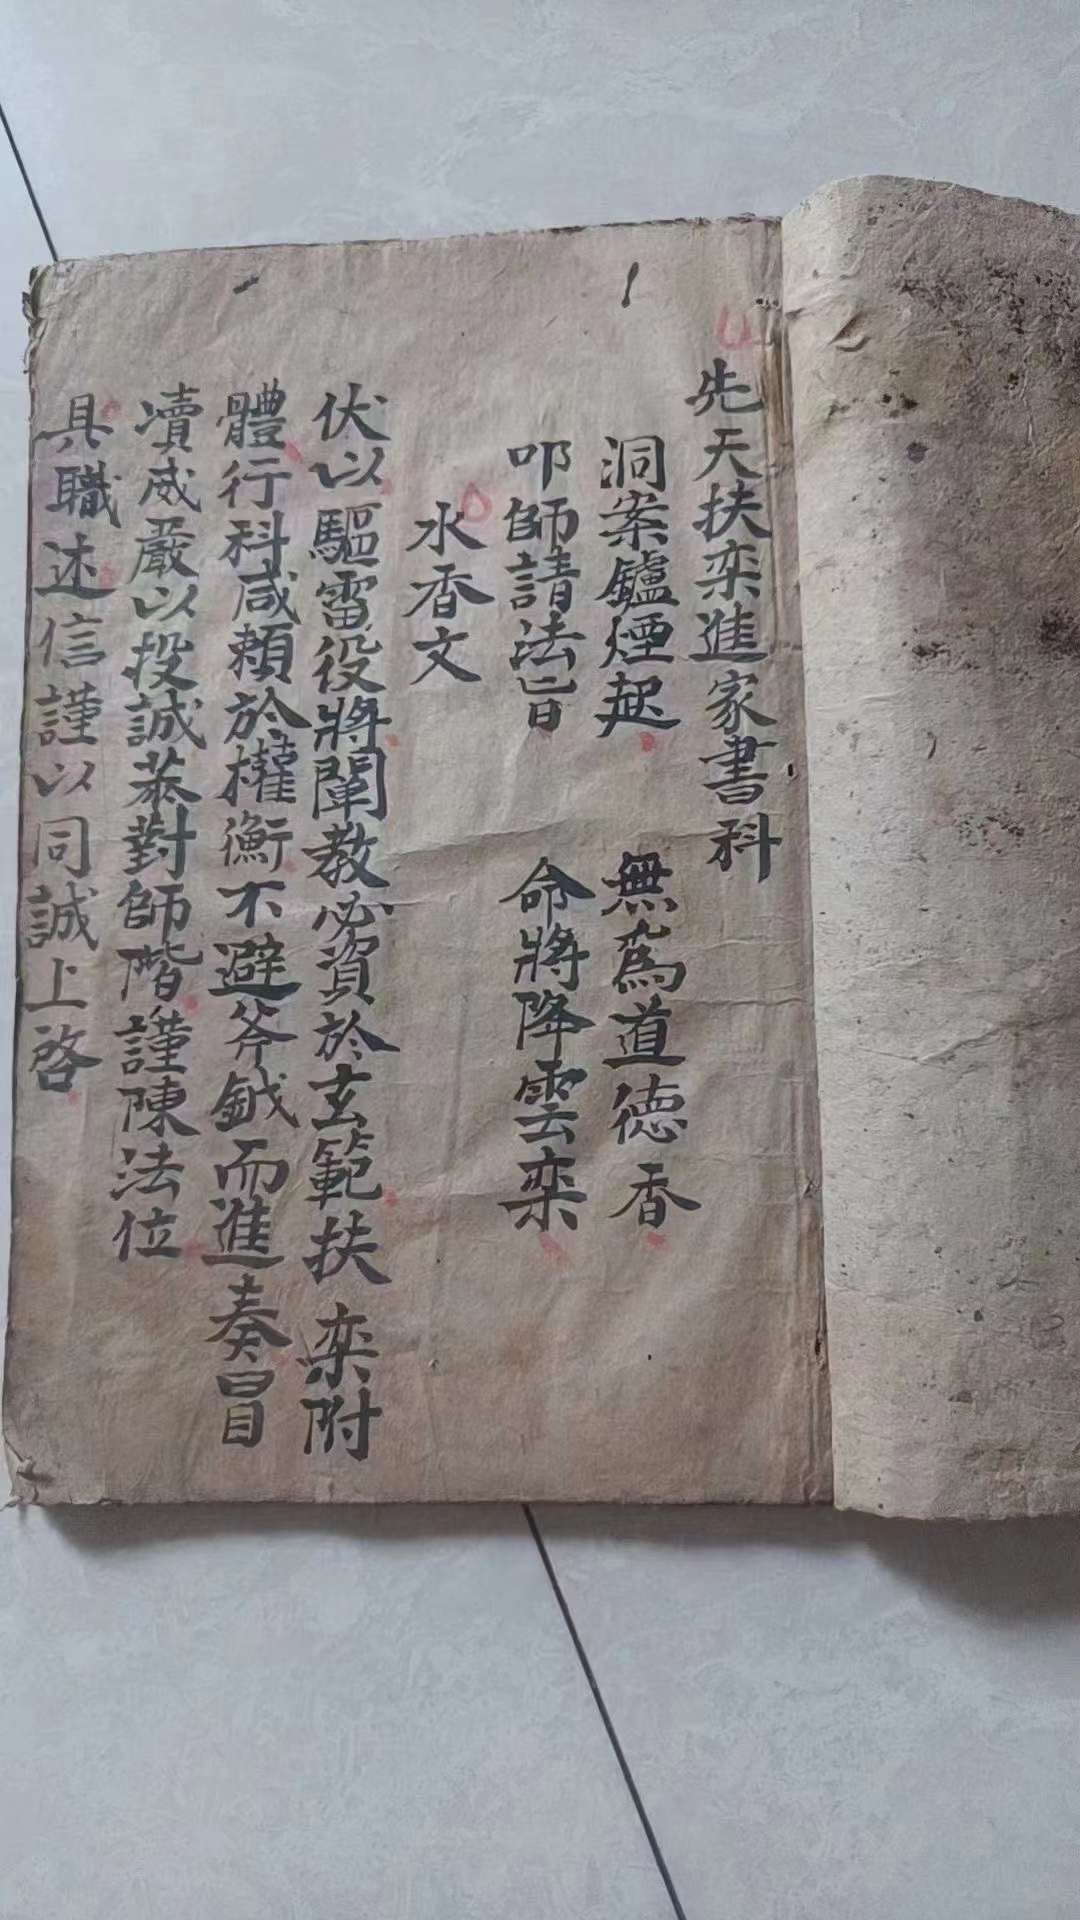 先天扶栾進家書科
洞案鑪煙起　無為道德香
叩師請法旨　命將降雲栾
水香文
伏以驅雷役將闡教必資於玄範扶栾附
體行科咸賴於權衡不避斧鉞而進奏冒
瀆威嚴以投誠恭對師階謹陳法位
具職述信謹以同誠上啓